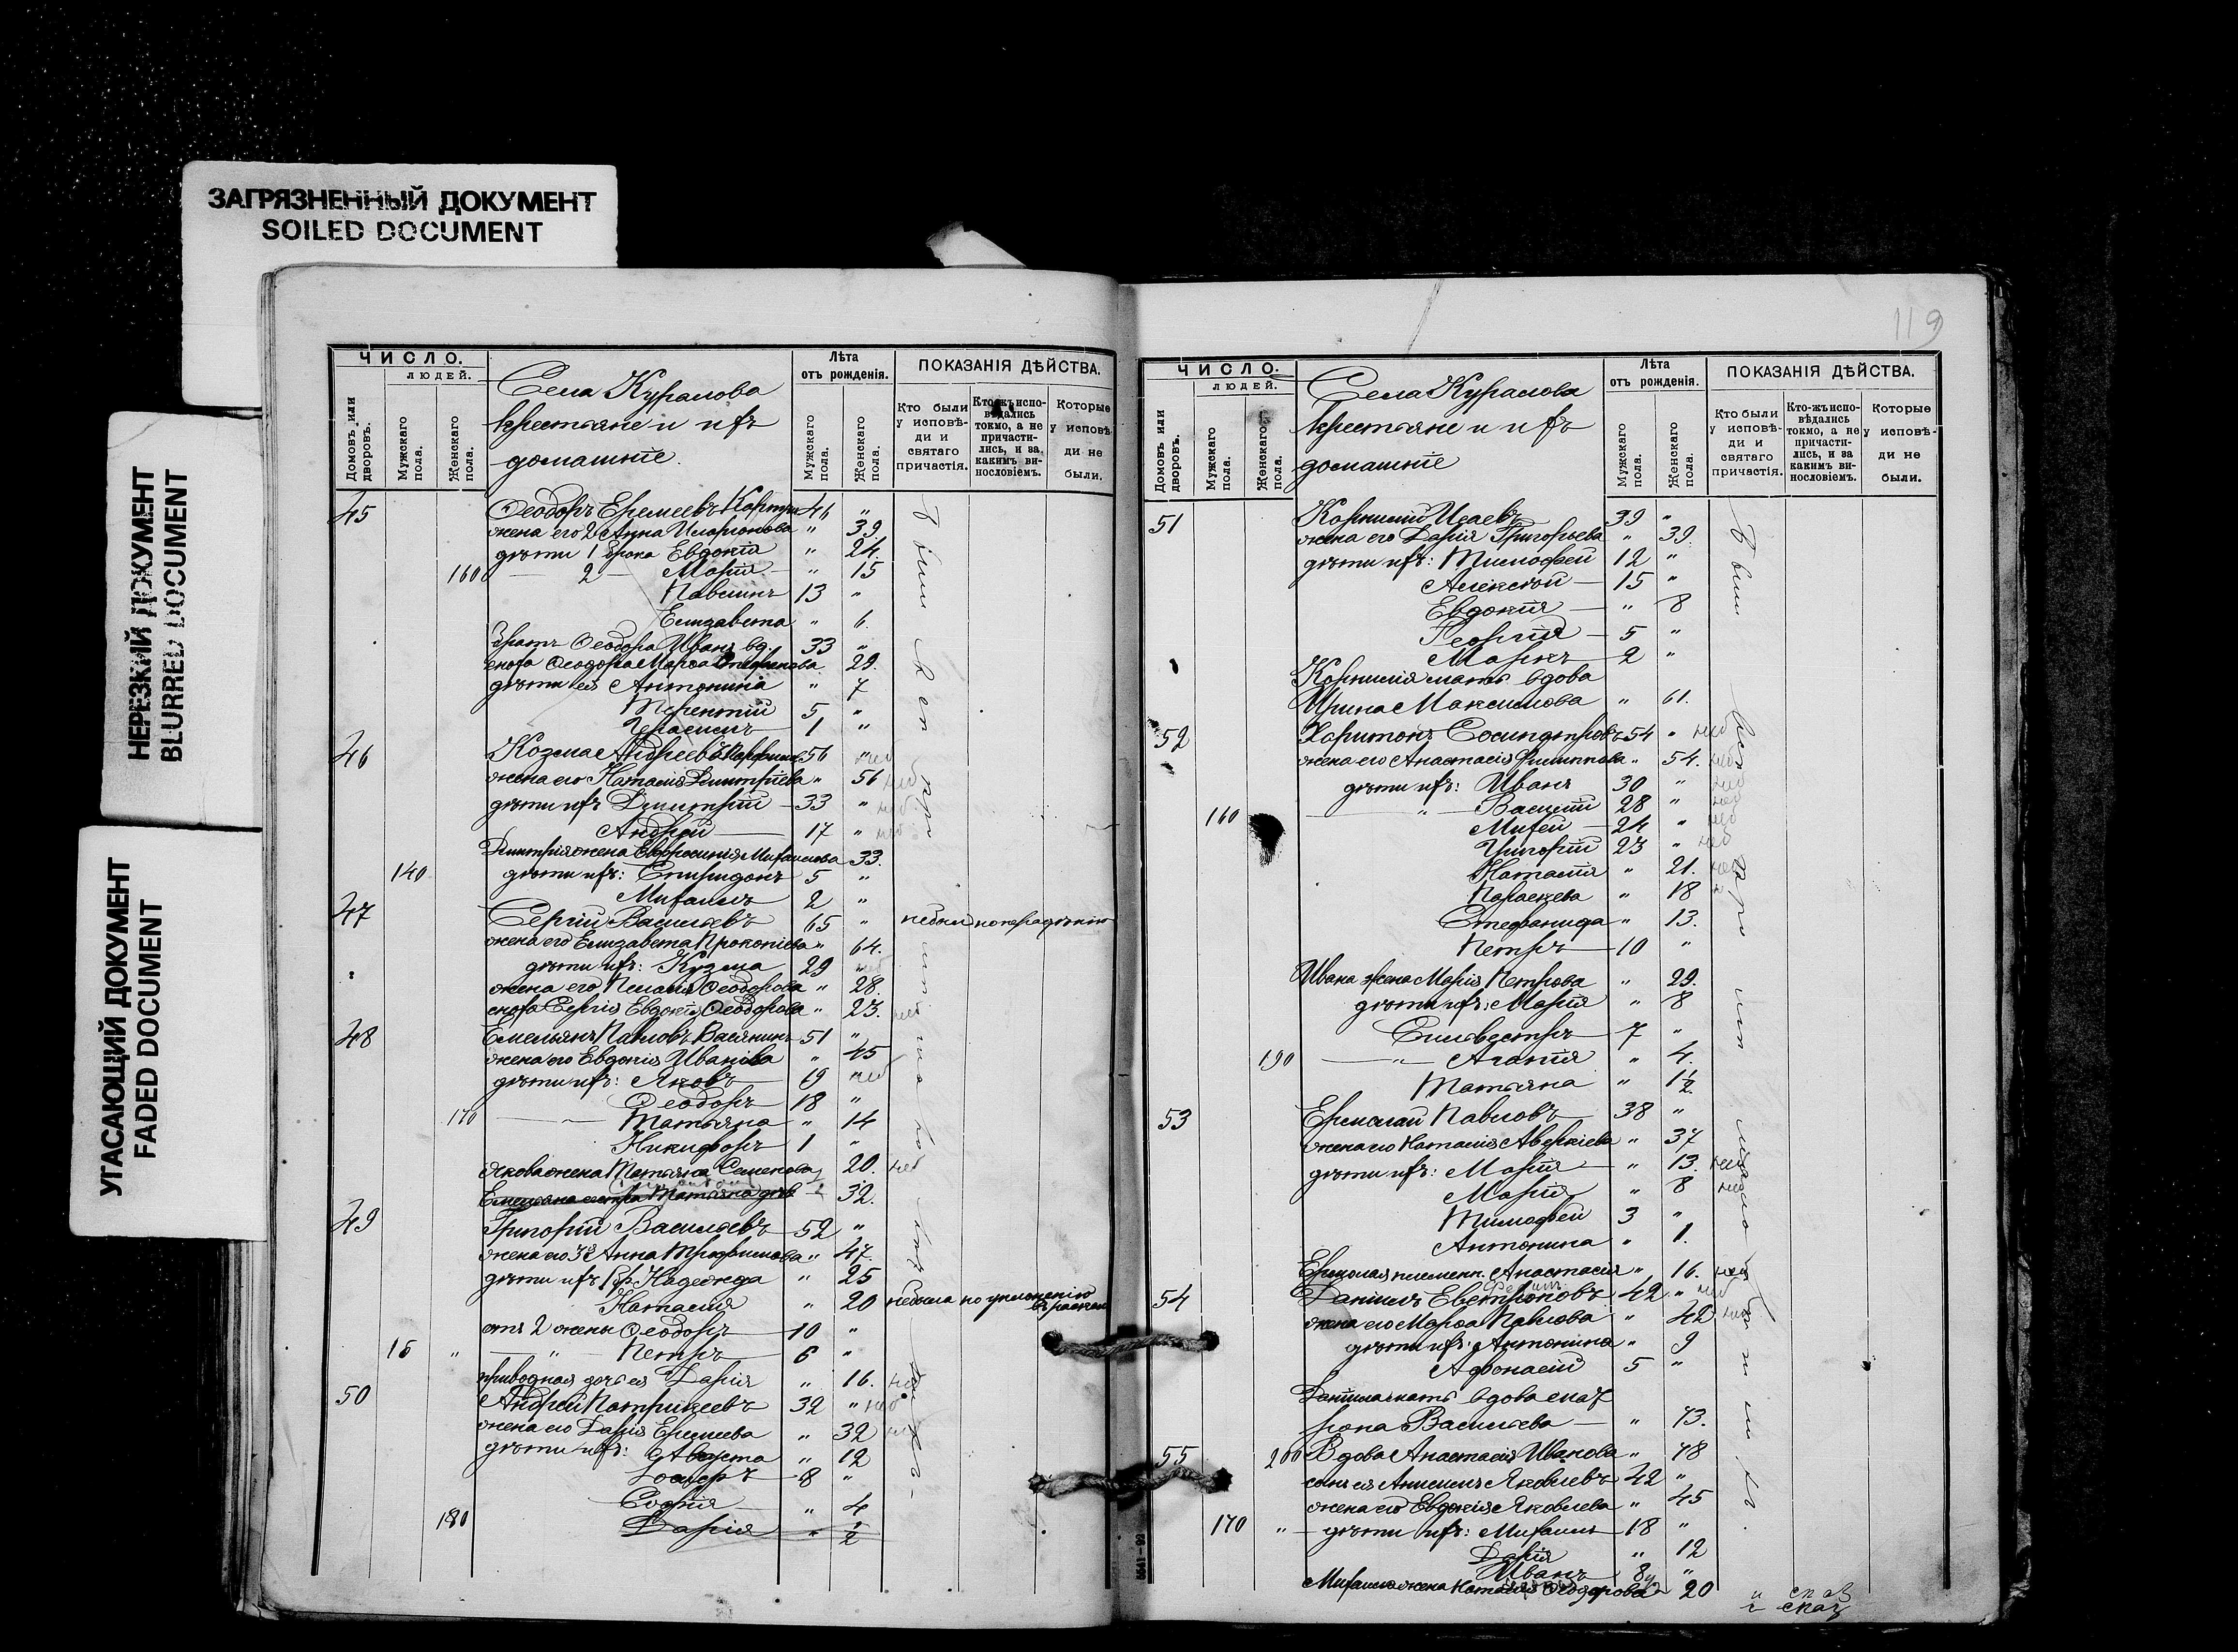 ЗАГРЯЗНЕННЫЙ ДОКУМЕНТ
SOILED DOCUMENT
НЕРЕЗКИЙ ДОКУМЕНТ
BLURRED DOCUMENT
УГАСАЮЩИЙ ДОКУМЕНТ
FADED DOCUMENT
ЧИСЛО.
ЛЮДЕЙ.
Домовъ или дворовъ.
Мужскаго пола.
Женскаго пола.
Села Куралова
крестьяне и ихъ
домашніе.
Лѣта
отъ рожденія.
Мужскаго пола.
Женскаго пола.
ПОКАЗАНІЯ ДѢЙСТВА.
Кто были у исповѣди и святаго причастія.
Кто-жъ исповѣдались токмо, а не причастились, и за какимъ винословіемъ.
Которые у исповѣди не были.
45 Ѳеодоръ Еремеевъ 46 "
жена его 2 Анна Иларионова " 39.
дѣти 1 брака Евдокія " 24.
160 — 2 — Марія " 15
Павелъ 13 "
Елизавета " 6.
братъ Ѳеодора Иванъ вд. 33 "
сноха Ѳеодора Марѳа 29.
дѣти ея Антонина " 7
Терентій 5 "
Герасимъ 1 "
46 Козма Андреевъ 56 "
жена его Наталія Димитріева " 56
дѣти ихъ Димитрій 33 "
Андрей 17 "
Димитрія жена Евфросинія Михаилова 33.
140 дѣти ихъ: Спиридонъ 5 "
Михаилъ 2 "
47 Сергій Васильевъ 65 "
жена его Елизавета Прокопіева " 64.
дѣти ихъ: Кузма 29
жена его Пелагія Ѳеодорова " 28.
сноха Сергія Евдокія Ѳеодорова " 23.
48 Емельянъ Павловъ 51 "
жена его Евдокія Иванова " 45
дѣти ихъ: Яковъ 19
Ѳеодоръ 18 "
170 Татьяна " 14
Никифоръ 1 "
Якова жена Татьяна Семенова 20.
Емельяна сестра Татьяна 32.
49 Григорій Васильевъ 52 "
жена его 3я Анна Трофимова " 47.
дѣти ихъ Надежда " 25
Наталія " 20
отъ 2 жены Ѳеодоръ 10 "
15 " Петръ 6 "
приводная дочь ея Дарія " 16.
50 Андрей Патрикеевъ 32 "
жена его Дарія Еремеева " 32
дѣти ихъ: Августа " 12
8 "
Софія " 4
180 Дарія " 1/2
119
ЧИСЛО.
ЛЮДЕЙ.
Домовъ или дворовъ.
Мужскаго пола.
Женскаго пола.
Села Куралова
крестьяне и ихъ
домашніе
Лѣта
отъ рожденія.
Мужскаго пола.
Женскаго пола.
ПОКАЗАНІЯ ДѢЙСТВА.
Кто были у исповѣди и святаго причастія.
Кто-жъ исповѣдались токмо, а не причастились, и за какимъ винословіемъ.
Которые у исповѣди не были.
51 Корнилій Исаевъ 39 "
жена его Дарія Григорьева " 39.
дѣти ихъ: Тимофей 12 "
Алексій 15 "
Евдокія " 8
Георгій 5 "
Маркъ 2 "
Корнилія мать вдова
Ирина Максимова " 61.
52 Харитонъ 54 "
жена его Анастасія Филиппова " 54.
дѣти ихъ: Иванъ 30 "
160 Василій 28 "
Михей 24 "
Григорій 23 "
Наталія " 21.
Параскева " 18
Стефанида " 13.
Петръ 10 "
Ивана жена Марія Петрова " 29.
дѣти ихъ: Марія " 8
Сильвестръ 7 "
190 Агапія " 4.
Татьяна " 1 1/2
53 Ермолай Павловъ 38 "
жена его Наталія Аверкіева " 37
дѣти ихъ: Марія " 13.
Марія " 8
Тимофей 3 "
Антонина " 1.
Ермолая племен. Анастасія " 16.
54 Даніилъ 42 "
жена его Марѳа Павлова " 42
дѣти ихъ: Антонина " 9
Афонасій 5 "
Даніила мать вдова
Васильева " 73.
55 200 Вдова Анастасія Иванова " 78
сынъ ея Яковлевъ 42 "
жена его Евдокія Яковлева " 45
170 " дѣти ихъ: Михаилъ 18 "
Дарія " 12
Иванъ "
Михаила жена Наталія Ѳеодорова 20
5541—92